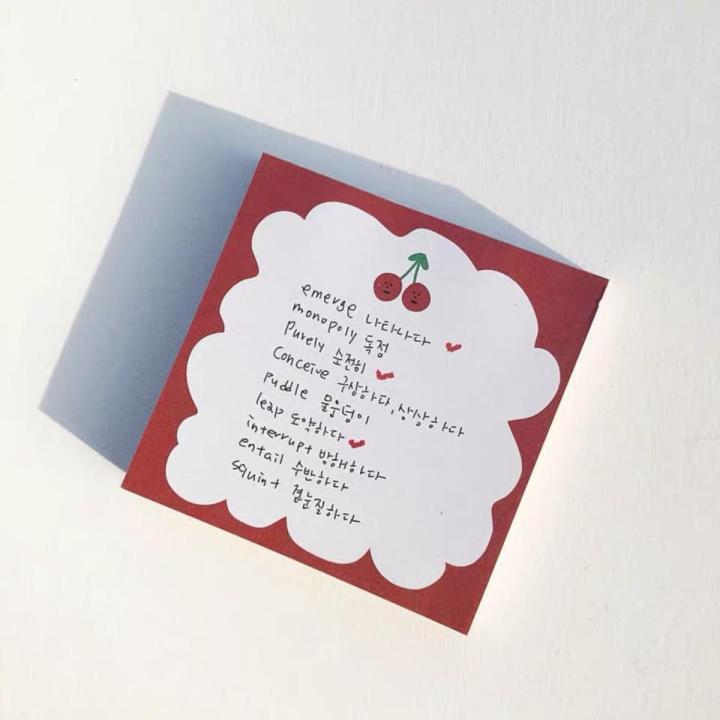 emerge 나타나다
monopoly 독점
Purely 순전히
Conceive 구상하다, 상상하다
Puddle 물웅덩이
leap 도약하다
interrupt 방해하다
entail 수반하다
squint 곁눈질하다